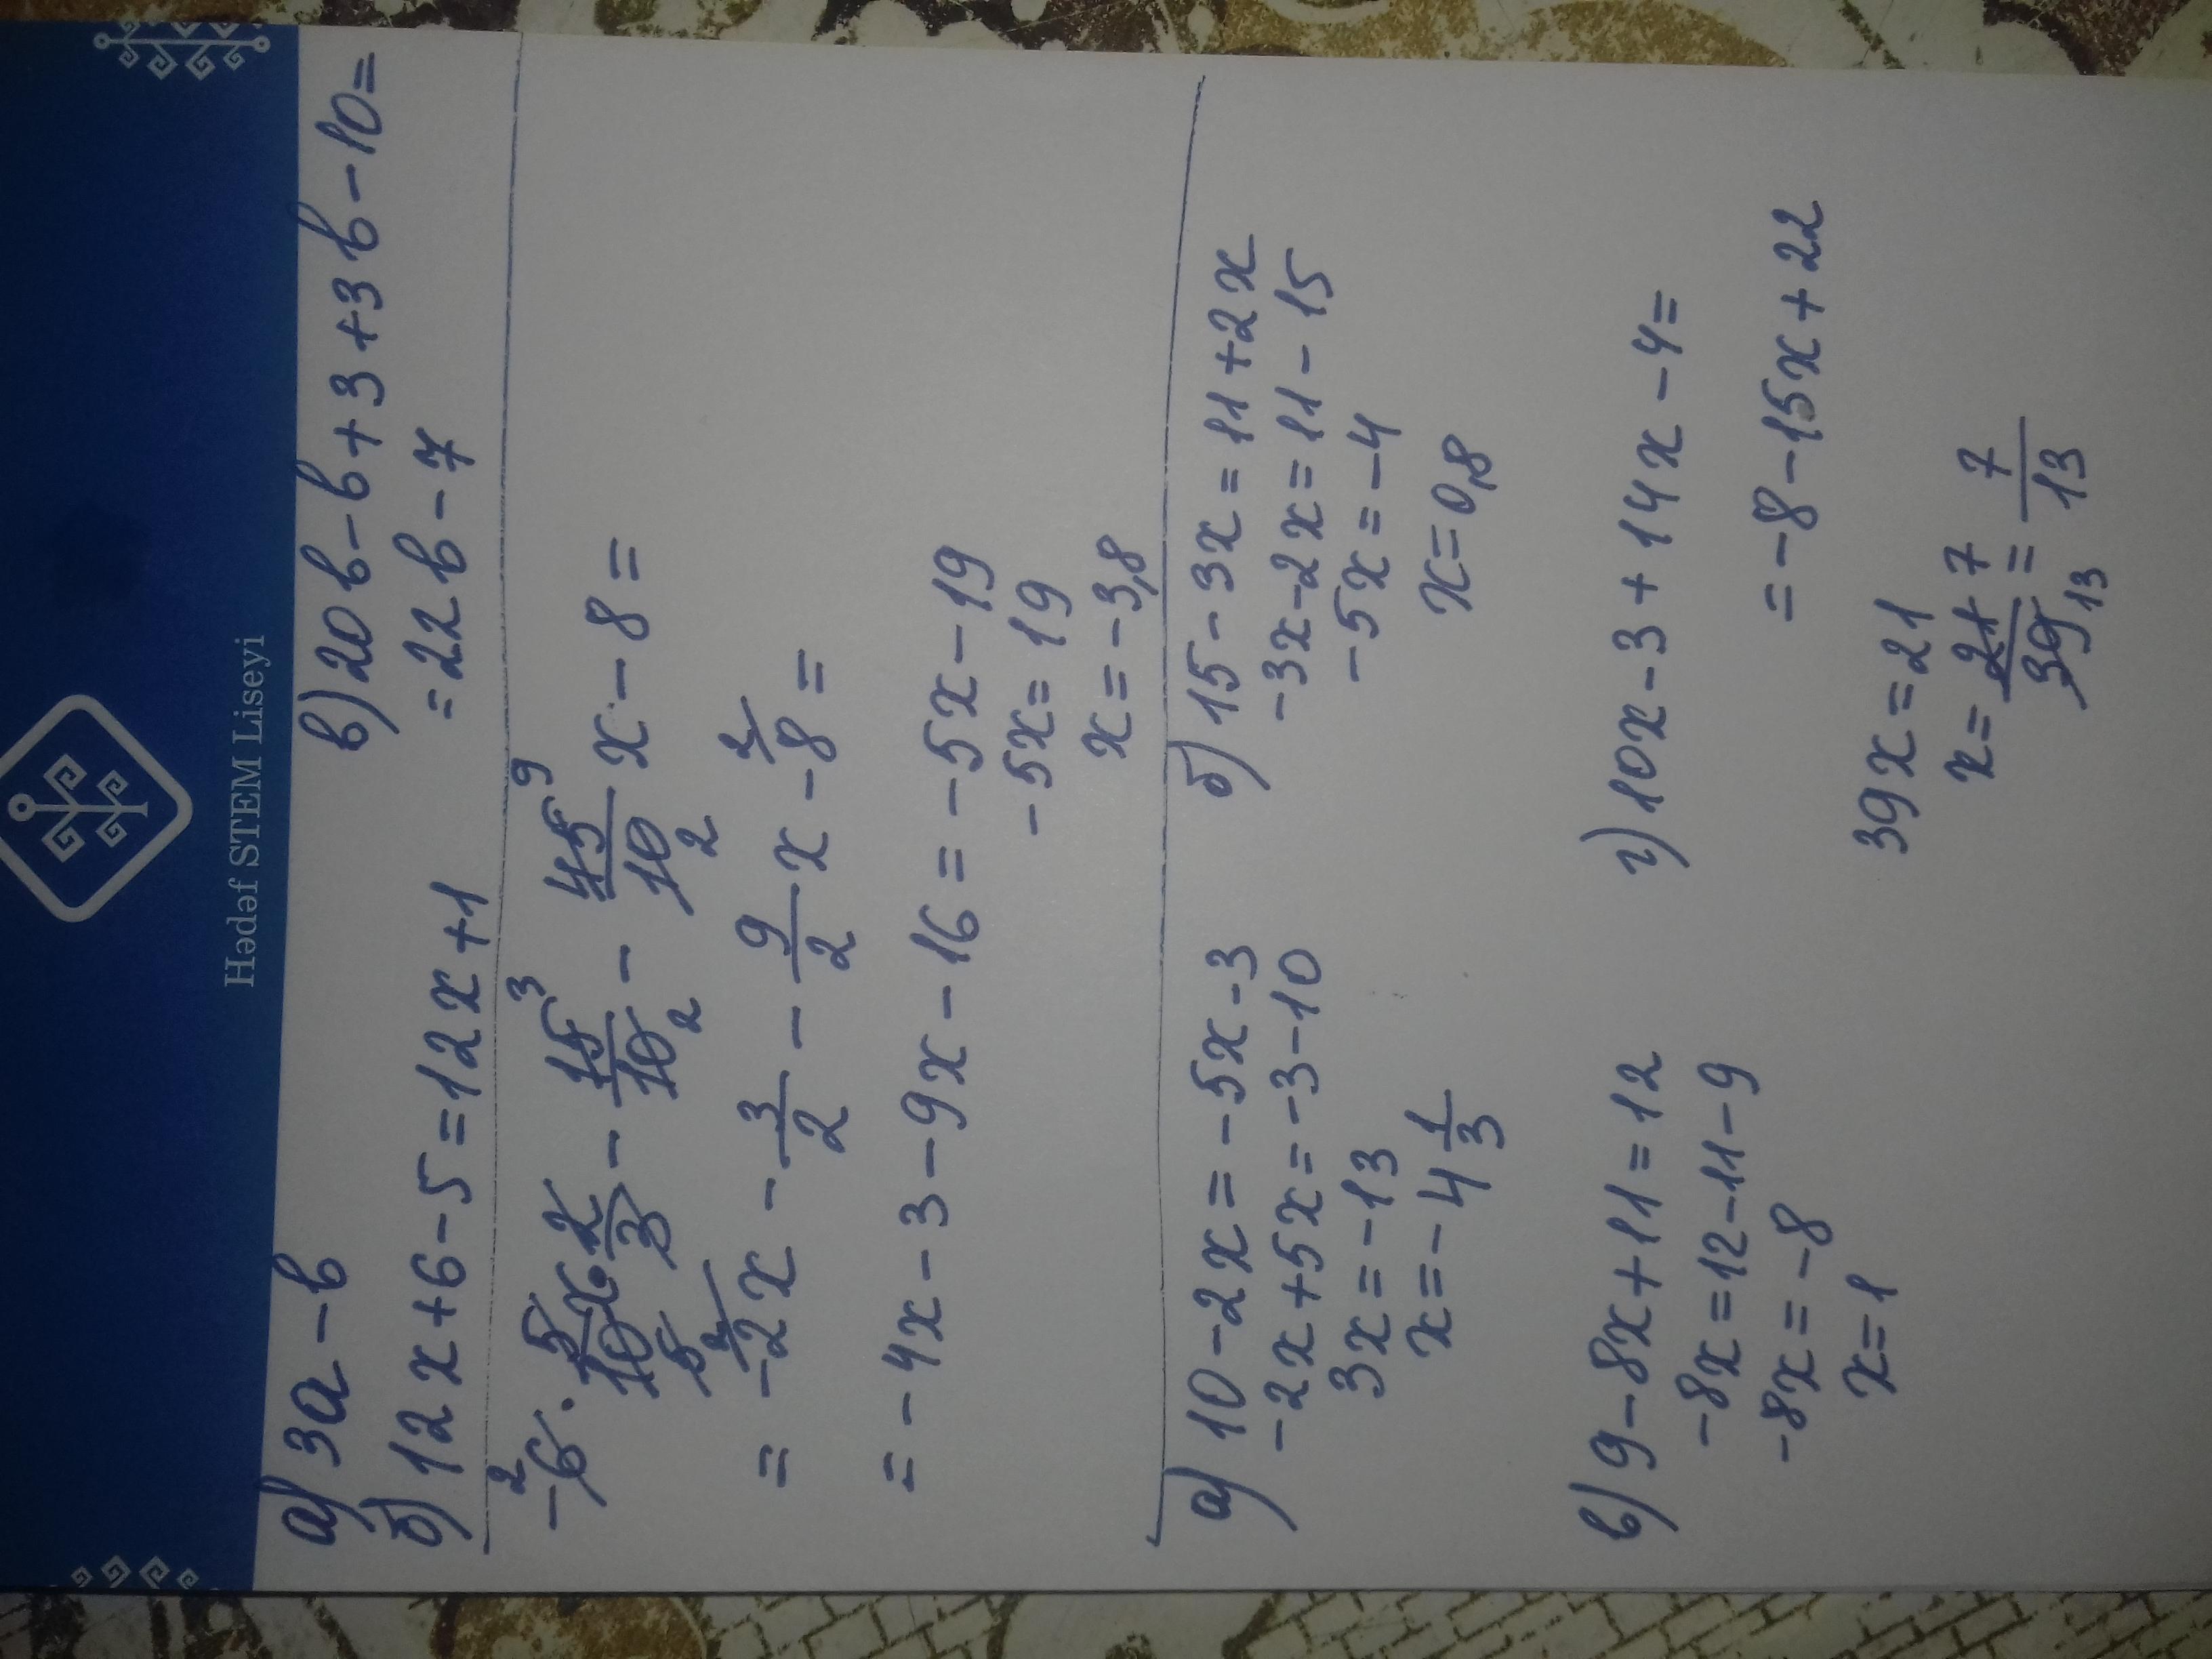 Hədəf STEM Liseyi
а) 3a - b
б) 12x + 6 - 5 = 12x + 1
в) 20b - b + 3 + 3b - 10 =
= 22b - 7
= -2x - 3/2 - 9/2 x - 8 =
= -4x - 3 - 9x - 16 = -5x - 19
-5x = 19
x = -3,8
а) 10 - 2x = -5x - 3
-2x + 5x = -3 - 10
3x = -13
x = -4 1/3
б) 15 - 3x = 11 + 2x
-3x - 2x = 11 - 15
-5x = -4
x = 0,8
в) 9 - 8x + 11 = 12
-8x = 12 - 11 - 9
-8x = -8
x = 1
г) 10x - 3 + 14x - 4 =
= -8 - 15x + 22
39x = 21
x = 21/39 = 7/13